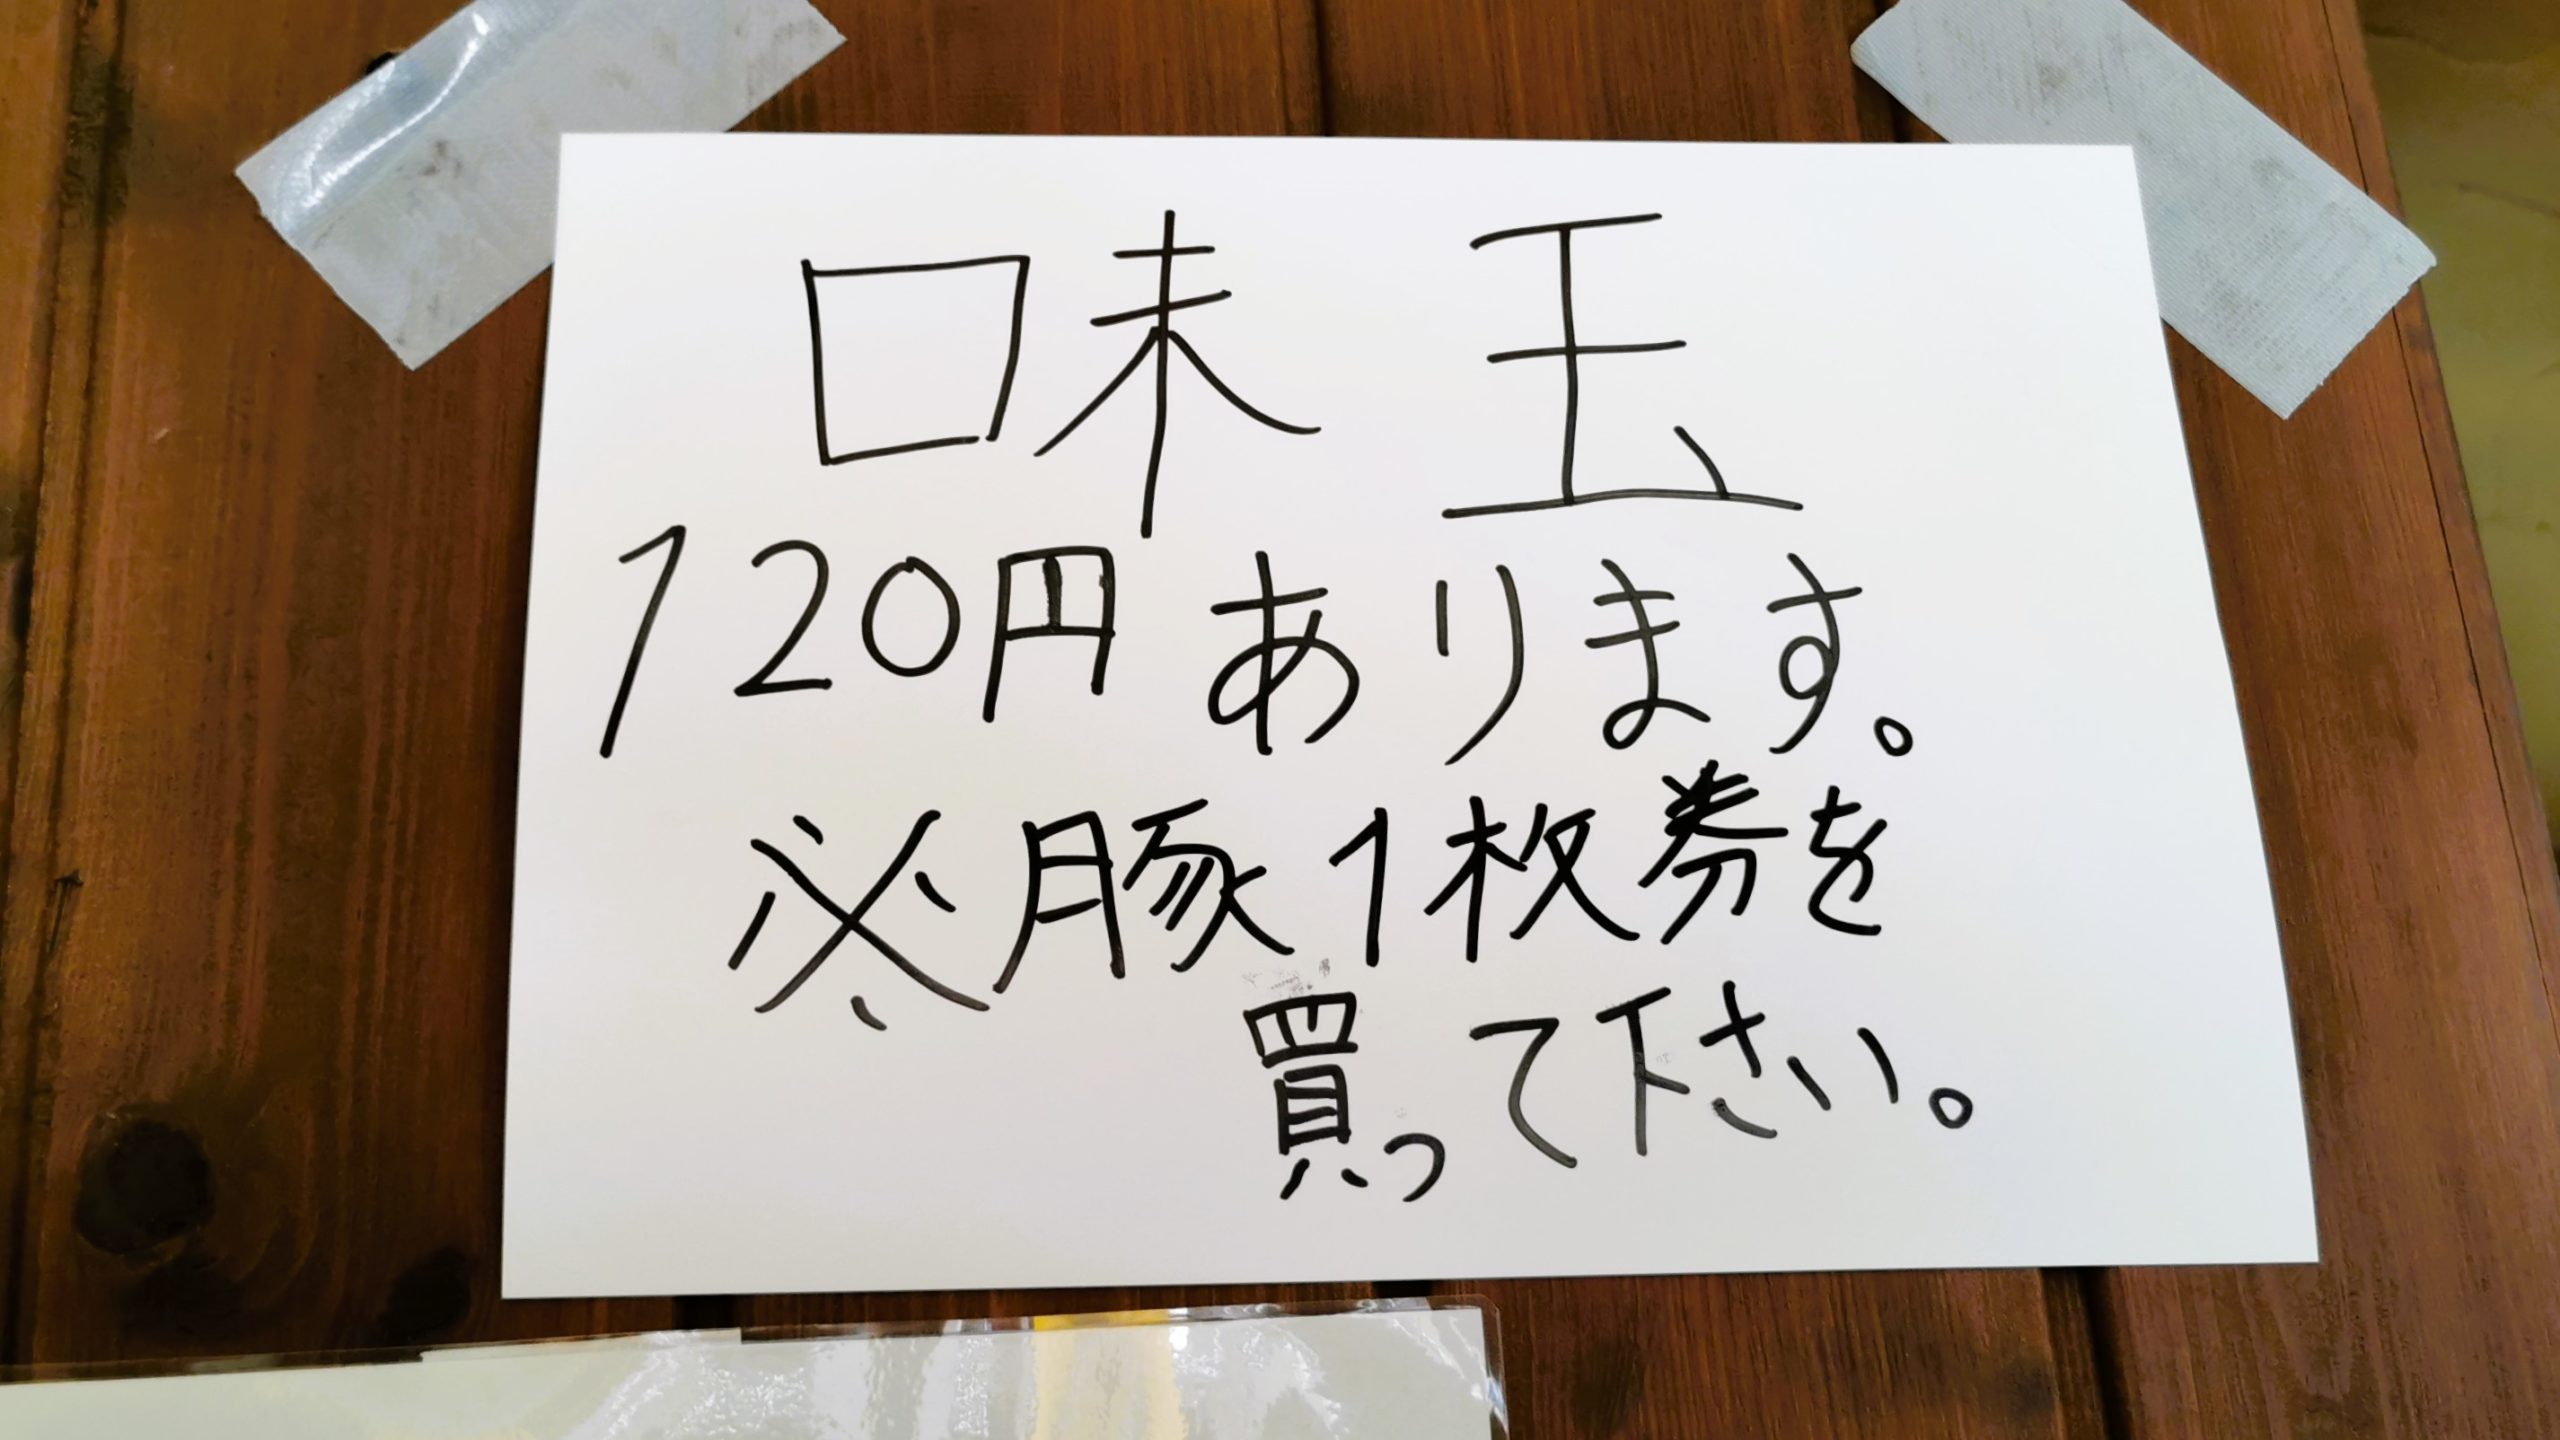 味玉
120円あります。
必豚1枚券を
買って下さい。